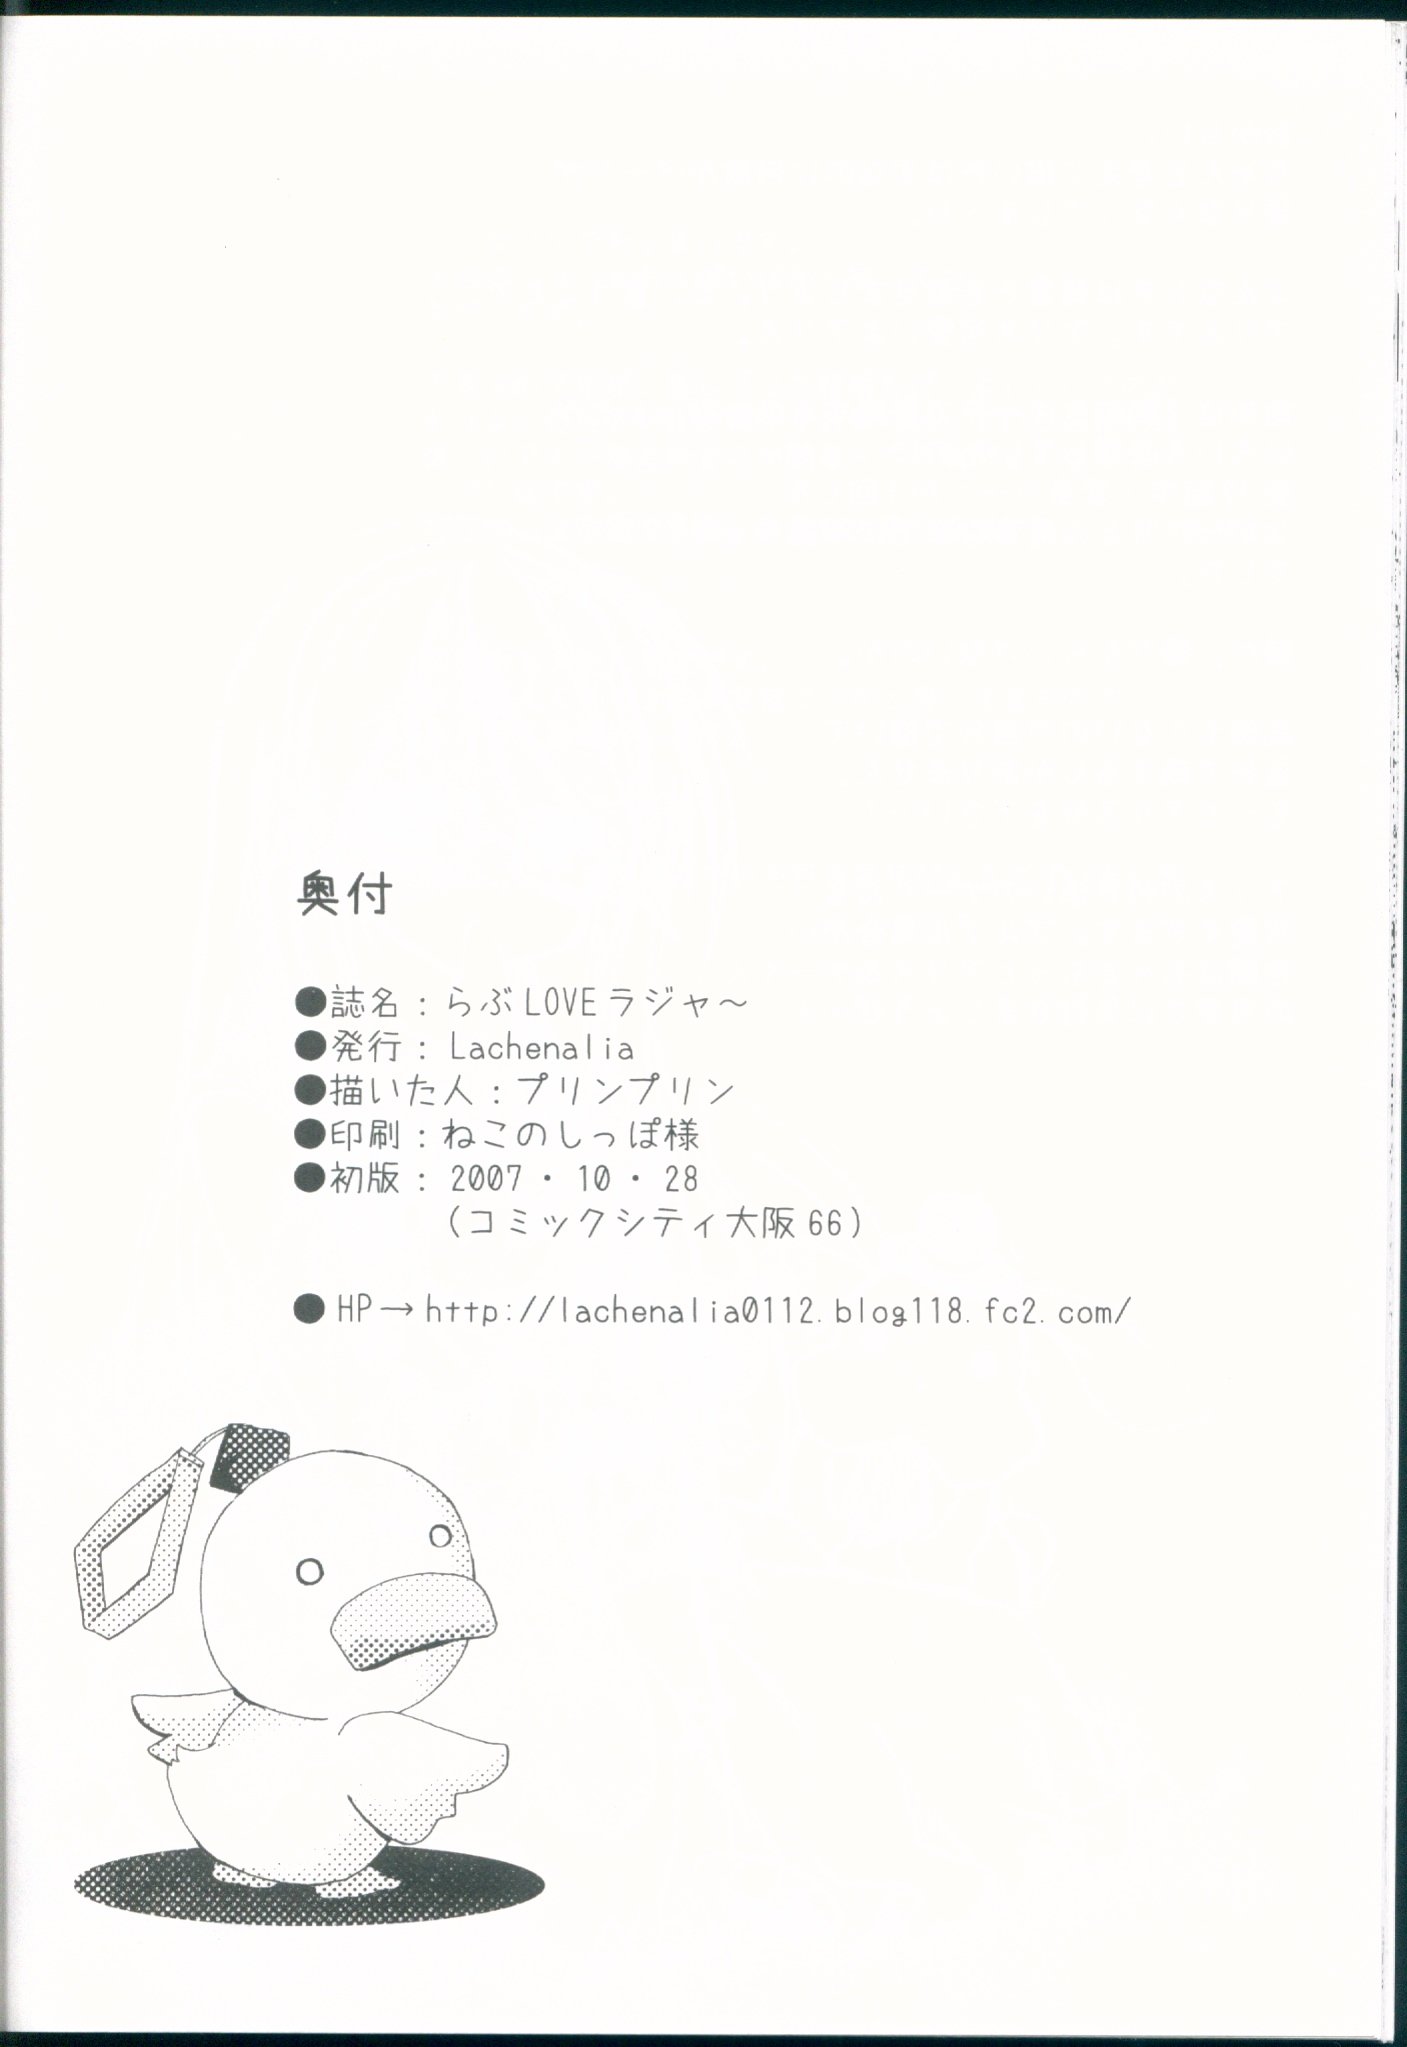 奥付
●誌名：らぶLOVEラジャ～
●発行：Lachenalia
●描いた人：プリンプリン
●印刷：ねこのしっぽ様
●初版：2007・10・28
（コミックシティ大阪66）
●HP→http://lachenalia0112.blog118.fc2.com/